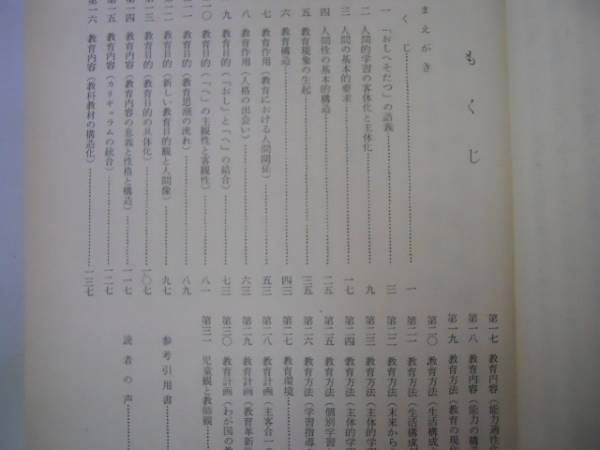 もくじ
まえがき
くじ……一
一 「おしへそたつ」の語義……三
二 人間的学習の客体化と主体化……九
三 人間の基本的要求……一七
四 人間性の基本的構造……二五
五 教育現象の生起……三五
六 教育構造……四三
七 教育作用（教育における人間関係）……五三
八 教育作用（人格の出会い）……六三
九 教育目的（「おし」と「へ」の結合）……七三
一〇 教育目的（「へ」の主観性と客観性）……八一
第一一 教育目的（教育思潮の流れ）……八九
第一二 教育目的（新しい教育目的観と人間像）……九七
第一三 教育目的（教育目的の具体化）……一〇七
第一四 教育内容（教育内容の意義と性格と構造）……一一七
第一五 教育内容（カリキュラムの統合）……一二七
第一六 教育内容（教科教材の構造化）……一三七
第一七 教育内容（能力適性化
第一八 教育内容（能力の構造
第一九 教育方法（教育の現代
第二〇 教育方法（生活構成
第二一 教育方法（生活構成
第二二 教育方法（未来から
第二三 教育方法（主体的学
第二四 教育方法（主体的学
第二五 教育方法（個別学習
第二六 教育方法（学習指導
第二七 教育環境……
第二八 教育計画（主客合一
第二九 教育計画（教育革新
第三〇 教育計画（わが国の教
第三一 児童観と教師観……
参考引用書……
読者の声……